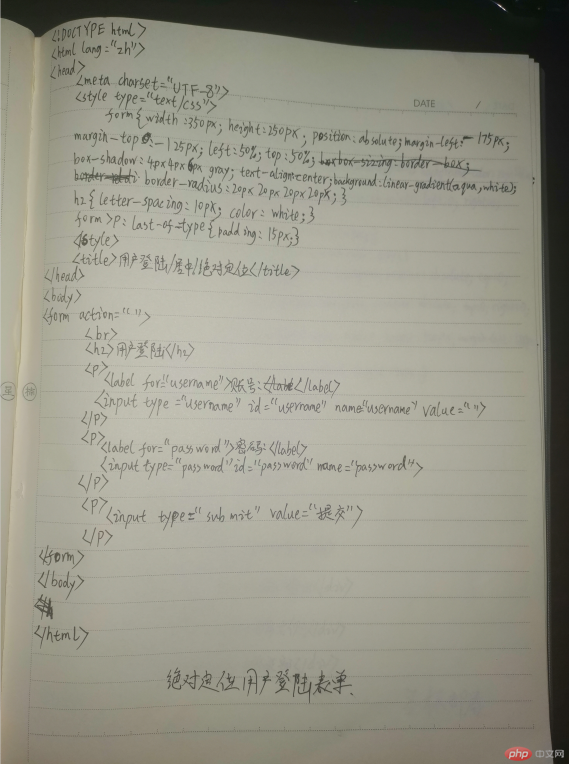 <!DOCTYPE html>
<html lang="zh">
<head>
<meta charset="UTF-8">
<style type="text/css">
DATE /
form{width:350px; height:250px; position:absolute; margin-left:-175px;
margin-top:-125px; left:50%; top:50%; box-sizing:border-box;
box-shadow:4px 4px 6px gray; text-align:center; background:linear-gradient(aqua,white);
border-radius:20px 20px 20px 20px; }
h2{letter-spacing:10px; color:white;}
form>p:last-of-type{padding:15px;}
</style>
<title>用户登陆/居中/绝对定位</title>
</head>
<body>
<form action="">
<br>
<h2>用户登陆</h2>
<p>
<label for="username">账号:</label>
<input type="username" id="username" name="username" value="">
</p>
<p>
<label for="password">密码:</label>
<input type="password" id="password" name="password">
</p>
<p>
<input type="submit" value="提交">
</p>
</form>
</body>
</html>
绝对定位用户登陆表单.
php 中文网